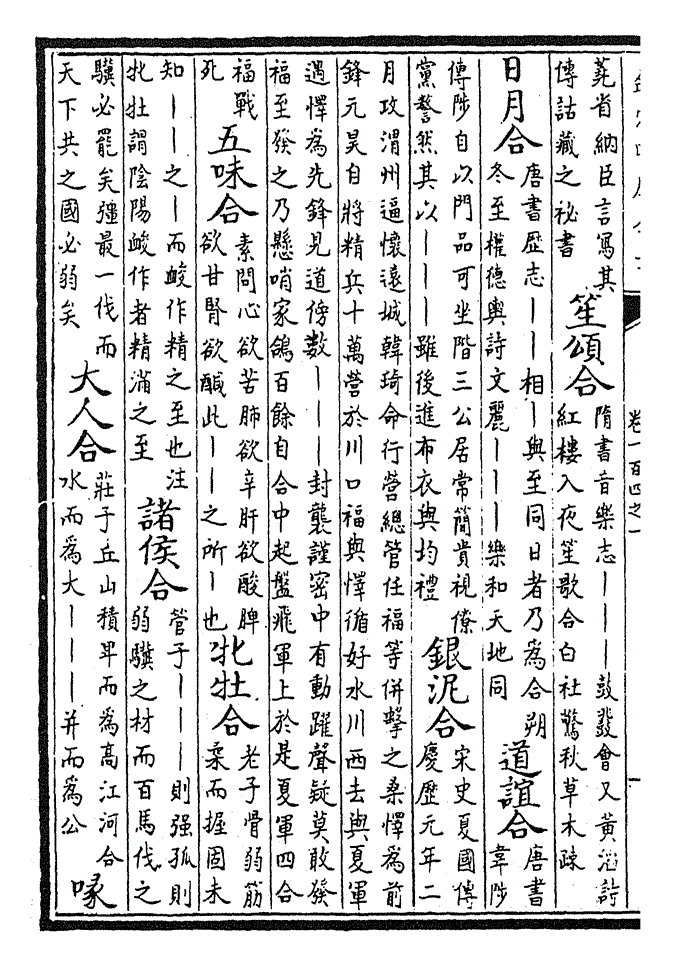 卷一百四之一
蕘省納臣言寫其
傳詁藏之祕書
笙頌合
隋書音樂志｜｜｜鼓發會又黃滔詩
紅樓入夜笙歌合白社驚秋草木疎
日月合
唐書歴志｜｜相｜與至同日者乃為合朔
冬至權德輿詩文麗｜｜｜樂和天地同
道誼合
唐書
韋陟
傳陟自以門品可坐階三公居常簡貴視僚
黨謷然其以｜｜｜雖後進布衣與均禮
銀泥合
宋史夏國傳
慶歷元年二
月攻渭州逼懷遠城韓琦命行營總管任福等併擊之桑懌為前
鋒元昊自將精兵十萬營於川口福與懌循好水川西去與夏軍
遇懌為先鋒見道傍數｜｜｜封襲謹密中有動躍聲疑莫敢發
福至發之乃懸哨家鴿百餘自合中起盤飛軍上於是夏軍四合
福戰
死
五味合
素問心欲苦肺欲辛肝欲酸脾
欲甘腎欲鹹此｜｜之所｜也
牝牡合
老子骨弱筋
柔而握固未
知｜｜之｜而峻作精之至也注
牝牡謂陰陽峻作者精滿之至
諸侯合
管子｜｜｜則强孤則
弱驥之材而百馬伐之
驥必罷矣彊最一伐而
天下共之國必弱矣
大人合
莊子丘山積卑而為高江河合
水而為大｜｜｜并而為公
喙